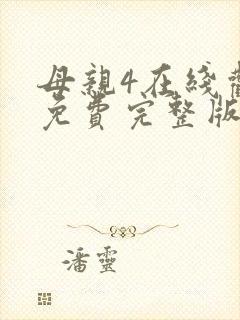 母親4在綫
免費完整版
潘靈